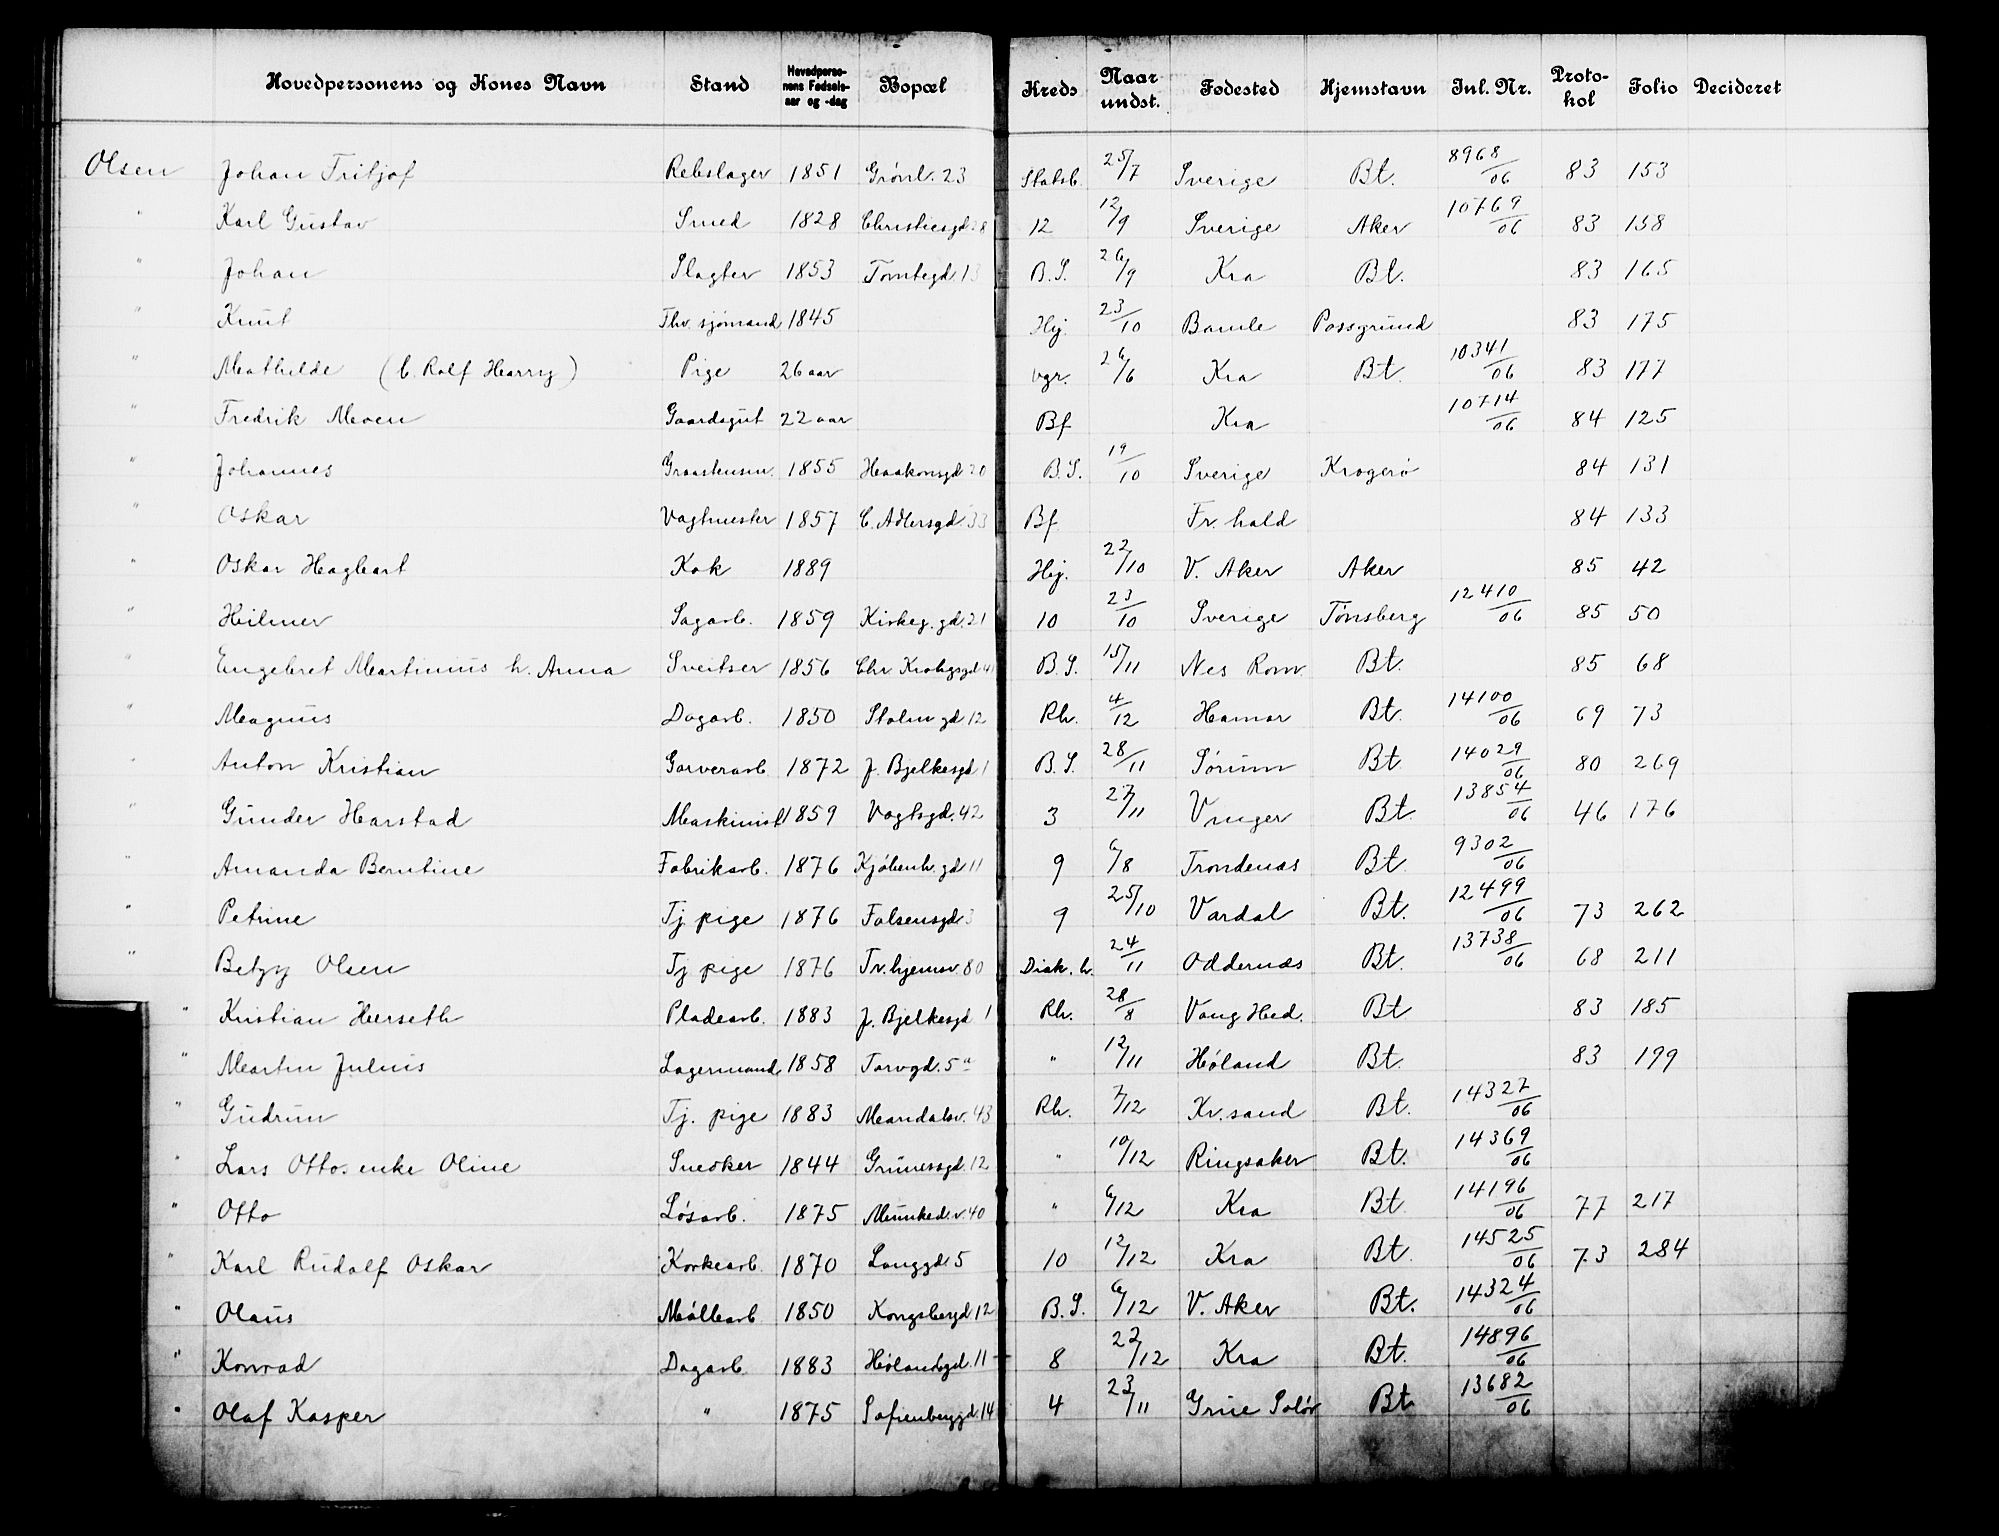 Hovedpersonens og Kones Navn Stand Hovedpersonens Fødselsaar og -dag Bopæl Kreds Naar undst. Fødested Hjemstavn Jnl. Nr. Protokol Folio Decideret
Olsen Johan Fritjof Rebslager 1851 Grønl. 23 Statsb. 25/7 Sverige Bt. 8968/06 83 153
" Karl Gustav Smed 1828 Christiesgd 28 12 12/9 Sverige Aker 10769/06 83 158
" Johan Slagter 1853 Tomtegd. 13 B.S. 26/9 Kra Bt. 83 165
" Knut Fhv. sjømand 1845 Hj. 23/10 Bamle Porsgrund 83 175
" Mathilde (b. Rolf Harry) Pige 26 aar vgr. 26/6 Kra Bt. 10341/06 83 177
" Fredrik Moen Gaardsgut 22 aar Bf Kra 10714/06 84 125
" Johannes 1855 Haakonsgd 20 B.S. 19/10 Sverige Kragerø 84 131
" Oskar Vagtmester 1857 C. Adlersgd. 33 Bf Fr. hald 84 133
" Oskar Hagbart Kok 1889 Hj. 22/10 V. Aker Aker 85 42
" Hilmer Sagarb. 1859 Kirkeg. gd. 21 10 23/10 Sverige Tønsberg 12410/06 85 50
" Engebret Martinius h. Anna Sveitser 1856 Chr. Krohgsgd 41 B.S. 15/11 Nes Rom. Bt. 85 68
" Magnus Dagarb. 1850 Stolm gd 12 Rh. 4/12 Hamar Bt. 14100/06 69 73
" Anton Kristian Garverarb. 1872 J. Bjelkesgd 1 B.S. 28/11 Sørum Bt. 14029/06 80 269
" Gunder Harstad Maskinist 1859 Vogtsgd. 42 3 27/11 Vinger Bt. 13854/06 46 176
" Amanda Berntine Fabrikarb. 1876 Kjøbenh. gd 11 9 6/8 Trondenæs Bt. 9302/06
" Petrine Tj pige 1876 Falsensgd. 3 9 25/10 Vardal Bt. 12499/06 73 262
" Betzy Olsen Tj pige 1876 Tr.hjemsv. 80 Diak. h. 24/11 Oddernæs Bt. 13738/06 68 211
" Kristian Herseth Pladearb. 1883 J. Bjelkesgd 1 Rh. 28/8 Vang Hed. Bt 83 185
" Martin Julius Lagermand 1858 Torvgd. 5a " 12/11 Høland Bt. 83 199
" Gudrun Tj. pige 1883 Mandalsv. 43 Rh. 7/12 Kr. sand Bt. 14327/06
" Lars Otto. enke Oline Snedker 1844 Grünersgd. 12 " 10/12 Ringsaker Bt. 14369/06
" Otto Løsarb. 1875 Munked. v. 40 " 6/12 Kra Bt. 14196/06 77 217
" Karl Rudolf Oskar Korkearb. 1870 Langgd. 5 10 12/12 Kra Bt. 14525/06 73 284
" Olaus Møllearb 1850 Kongsbergd. 12 B.S. 6/12 V. Aker Bt. 14324/06
" Konrad Dagarb. 1883 Hølandsgd. 11 8 22/12 Kra Bt. 14896/06
" Olaf Kasper " 1875 Sofienberggd. 14 4 23/11 Grue Solør Bt 13682/06